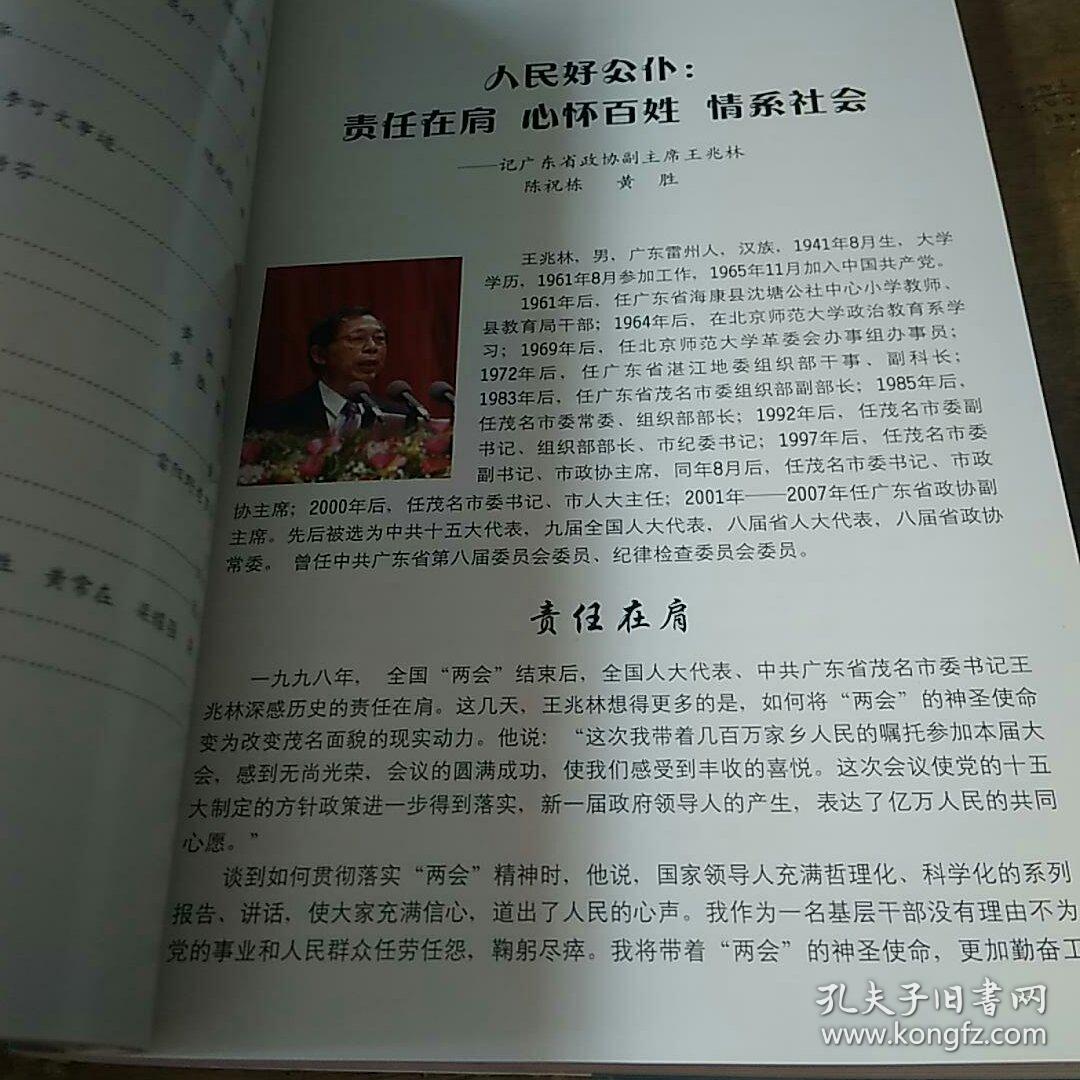 人民好公仆：
责任在肩 心怀百姓 情系社会
——记广东省政协副主席王兆林
陈祝栋 黄 胜
王兆林，男，广东雷州人，汉族，1941年8月生，大学
学历，1961年8月参加工作，1965年11月加入中国共产党。
1961年后，任广东省海康县沈塘公社中心小学教师、
县教育局干部；1964年后，在北京师范大学政治教育系学
习；1969年后，任北京师范大学革委会办事组办事员；
1972年后，任广东省湛江地委组织部干事、副科长；
1983年后，任广东省茂名市委组织部副部长；1985年后，
任茂名市委常委、组织部部长；1992年后，任茂名市委副
书记、组织部部长、市纪委书记；1997年后，任茂名市委
副书记、市政协主席，同年8月后，任茂名市委书记、市政
协主席；2000年后，任茂名市委书记、市人大主任；2001年——2007年任广东省政协副
主席。先后被选为中共十五大代表，九届全国人大代表，八届省人大代表，八届省政协
常委。 曾任中共广东省第八届委员会委员、纪律检查委员会委员。
责任在肩
一九九八年， 全国“两会”结束后，全国人大代表、中共广东省茂名市委书记王
兆林深感历史的责任在肩。这几天，王兆林想得更多的是，如何将“两会”的神圣使命
变为改变茂名面貌的现实动力。他说：“这次我带着几百万家乡人民的嘱托参加本届大
会，感到无尚光荣，会议的圆满成功，使我们感受到丰收的喜悦。这次会议使党的十五
大制定的方针政策进一步得到落实，新一届政府领导人的产生，表达了亿万人民的共同
心愿。”
谈到如何贯彻落实“两会”精神时，他说，国家领导人充满哲理化、科学化的系列
报告、讲话，使大家充满信心，道出了人民的心声。我作为一名基层干部没有理由不为
党的事业和人民群众任劳任怨，鞠躬尽瘁。我将带着“两会”的神圣使命，更加勤奋工
孔夫子旧书网
www.kongfz.com